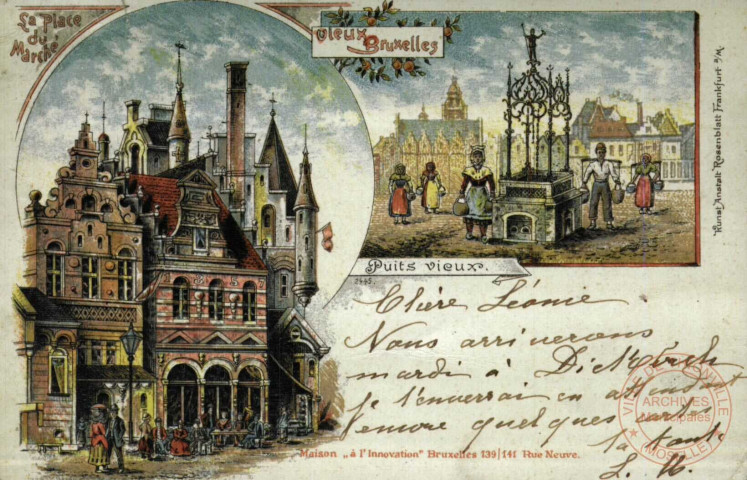 La Place
du
Marché
Vieux
Bruxelles
Puits vieux.
2445.
Kunst Anstalt Rosenblatt Frankfurt a/M.
Chère Léonie
Nous arriverons
mardi à Diekirch
je t'enverrai en attendant
encore quelques
ta tante
L. N.
Maison „à l'Innovation" Bruxelles 139|141 Rue Neuve.
VILLE DE THIONVILLE
ARCHIVES
Municipales
(MOSELLE)